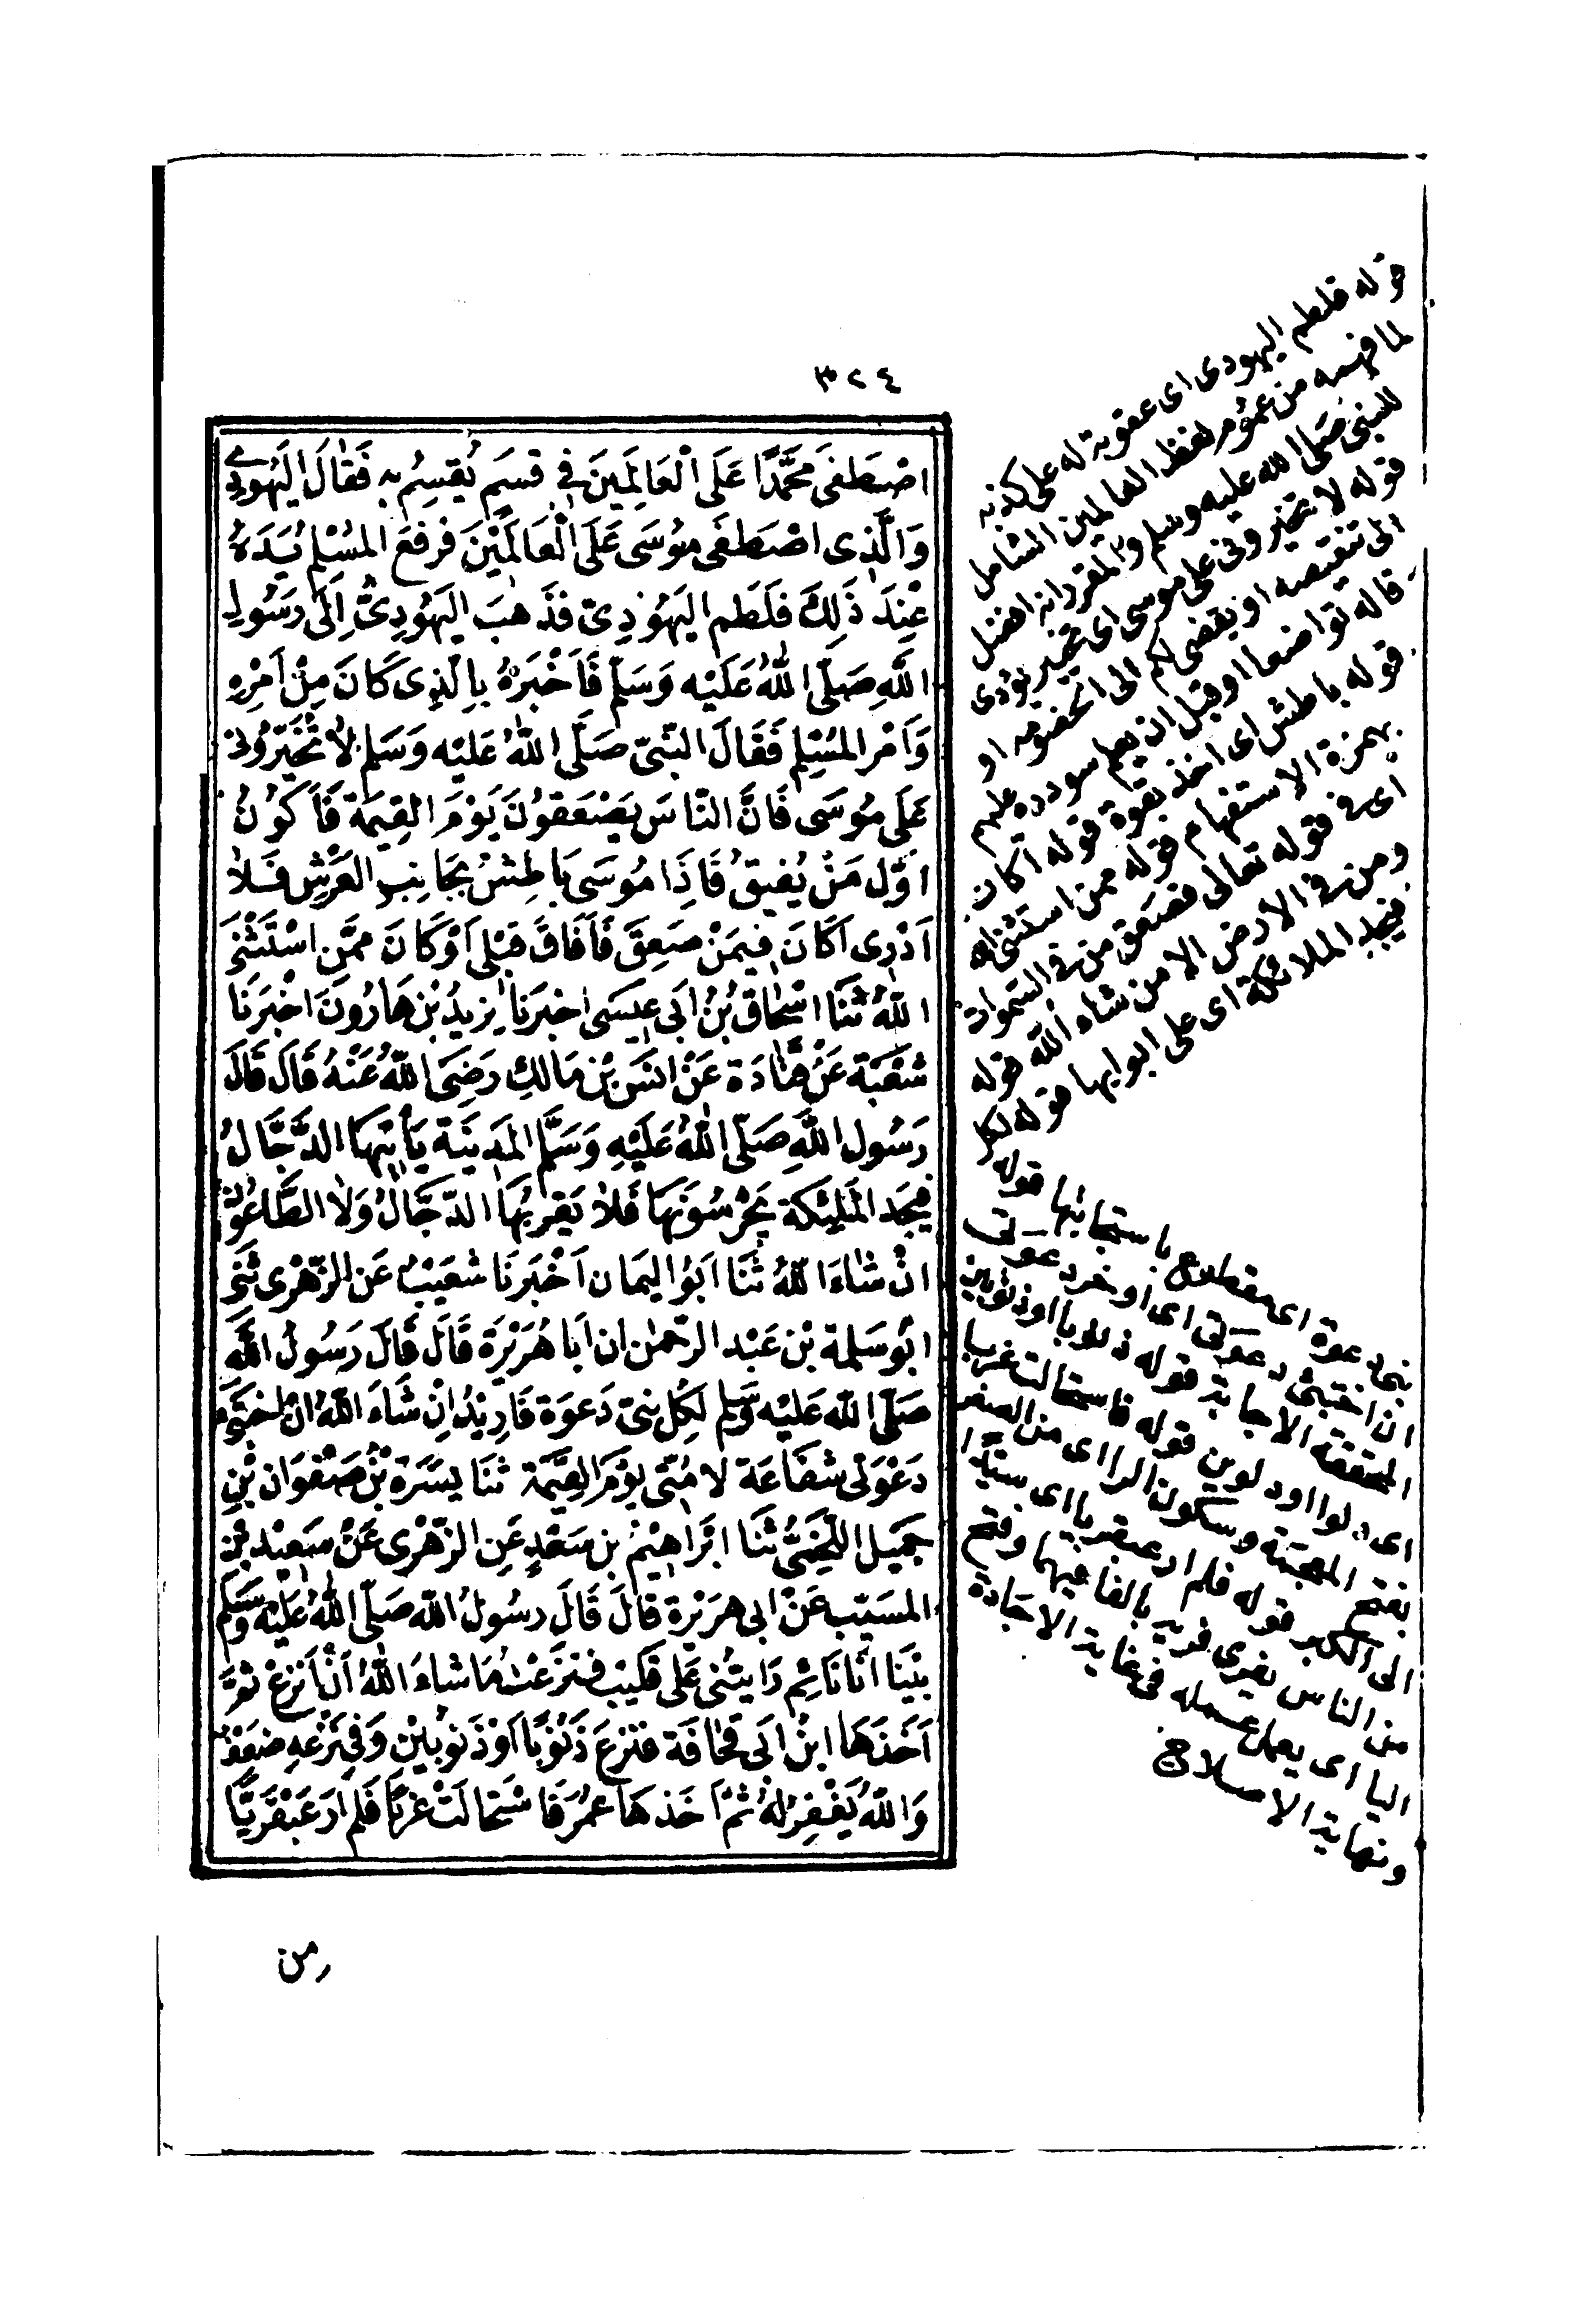 ٣٢٤
اصْطَفَى مُحَمَّدًا عَلَى الْعَالَمِينَ فِي قَسَمٍ يُقْسِمُ بِهِ فَقَالَ الْيَهُودِي
وَالَّذِى اصْطَفَى مُوسَى عَلَى الْعَالَمِيْنَ فرفعَ المُسْلِمُ يَدَهُ
عِنْدَ ذَلِكَ فَلَطَمَ اليَهُودِيّ فَذَهبَ اليَهُودِىُّ إِلَى رَسُولِ
اللَّهِ صَلّى اللهُ عَلَيْه وَسَلم فَأَخْبَرَهُ بِالّذِى كَانَ مِنْ اَمْرِهِ
وَاَمْر المُسْلِم فَقَالَ النّبىّ صَلّى اللهُ عَلَيْه وَسَلم لاَ تُخَيّرُونى
عَلَى مُوسَى فَانَّ النّاسَ يَصْعَقُونَ يَوْمَ القِيمَة فَاَكُونُ
اَوّل مَنْ يُفيقُ فَاِذَا مُوسَى بَاطِشٌ بِجَانِبِ العَرْشِ فَلاَ
اَدْرِى اَكَانَ فِيمَنْ صَعِقَ فَاَفَاقَ قَبْلِى اَوْكَانَ مِمَّن اسْتَثْنَى
اللهُ ثَنَا اسْحَاق بْنُ اَبى عِيسَى اخبَرنَا يزيدُ بْن هَارُونَ اخْبَرَنَا
شعْبَة عَنْ قتَادَة عَنْ انَس بْن مَالكٍ رَضِىَ اللهُ عَنْهُ قَالَ قَالَ
رَسُول اللَّهِ صَلّى اللهُ عَلَيْهِ وَسَلَّم المَدِينَة يَأتِيهَا الدَّجَّالُ
فيجَد المَلَئِكَة يَحْرُسُونَهَا فَلاَ يَقربُهَا الدّجَّالُ وَلاَ الطَّاعُونُ
انْ شَاءَ اللهُ ثَنَا اَبُو اليَمان اَخْبَرَنَا شعَيْبٌ عَن الزّهْرِى ثَنَى
ابُو سَلمة بْن عَبْد الرّحمن ان اَبَا هُرَيْرَة قَالَ قَالَ رَسُولُ اللَّهِ
صَلّى الله عَليْه وسَلم لكُل نبىّ دَعوَة فَاريْدُ انْ شَاءَ اللهُ انْ اختَبىَ
دَعْوَتى شفَاعَة لاُمّتى يوْمَ القِيَمَة ثَنَا يَسَرَة بْن صَفْوَان بْنِ
جَمِيل اللّخمِىُّ ثَنَا ابْرَاهِيمُ بن سَعْدٍ عَنِ الزّهْرِى عَنْ سَعِيْد بْن
المسَيّب عَنْ ابى هرَيْرة قَالَ قَالَ رسُولُ الله صَلّى اللهُ عَلَيْه وَسَلم
بَيْنَا اَنَا نَائِم رَايتُنى عَلَى قَلِيْب فنزَعْتُ مَا شاءَ اللهُ اَنْ اَنزعَ ثمَّ
اَخَذَهَا ابنُ اَبى قحَافَة فنزعَ ذَنُوبًا اَوْ ذَنوبَيْن وَفى نَزْعهِ ضَعفٌ
وَاللهُ يَغْفِرُ لهُ ثمَّ اَخَذهَا عمَرُ فَاسْتحَالَتْ غربًا فَلم اَرَ عَبْقَريًّا
من
قوله فلطم اليهودى اى عقوبة له على كذبه
لما فهمه من عموم لفظ العالمين الشامل
للنبى صلى الله عليه وسلم والمقرر انه افضل
قوله لا تخيرونى على موسى اى تخيير يؤدى
الى تنقيصه او يفضى بكم الى الخصومه او
قاله تواضعا او قبل ان يعلم سودده عليهم
قوله باطش اى اخذ بقوة قوله اكان
بهمزة الاستفهام قوله ممن استثنى الله
اى فى قوله تعالى فصعق من فى السموات
ومن فى الارض الا من شاء الله قوله
فيجد الملائكة اى على ابوابها قوله لكل
نبى دعوة اى مقطوع باستجابتها قوله
ان اختبئ دعوتى اى اوخر دعوتى
المحققة الاجابة قوله ذنوبا او ذنوبين
اى دلوا او دلوين قوله فاستحالت غربا
بفتح المعجمة وسكون الرا اى من الصغر
الى الكبر قوله فلم ار عبقريا اى سيدا
من الناس يفرى فريه بالفا فيهما وفتح
اليا اى يعمل عمله فى غاية الاجادة
ونهاية الاصلاح